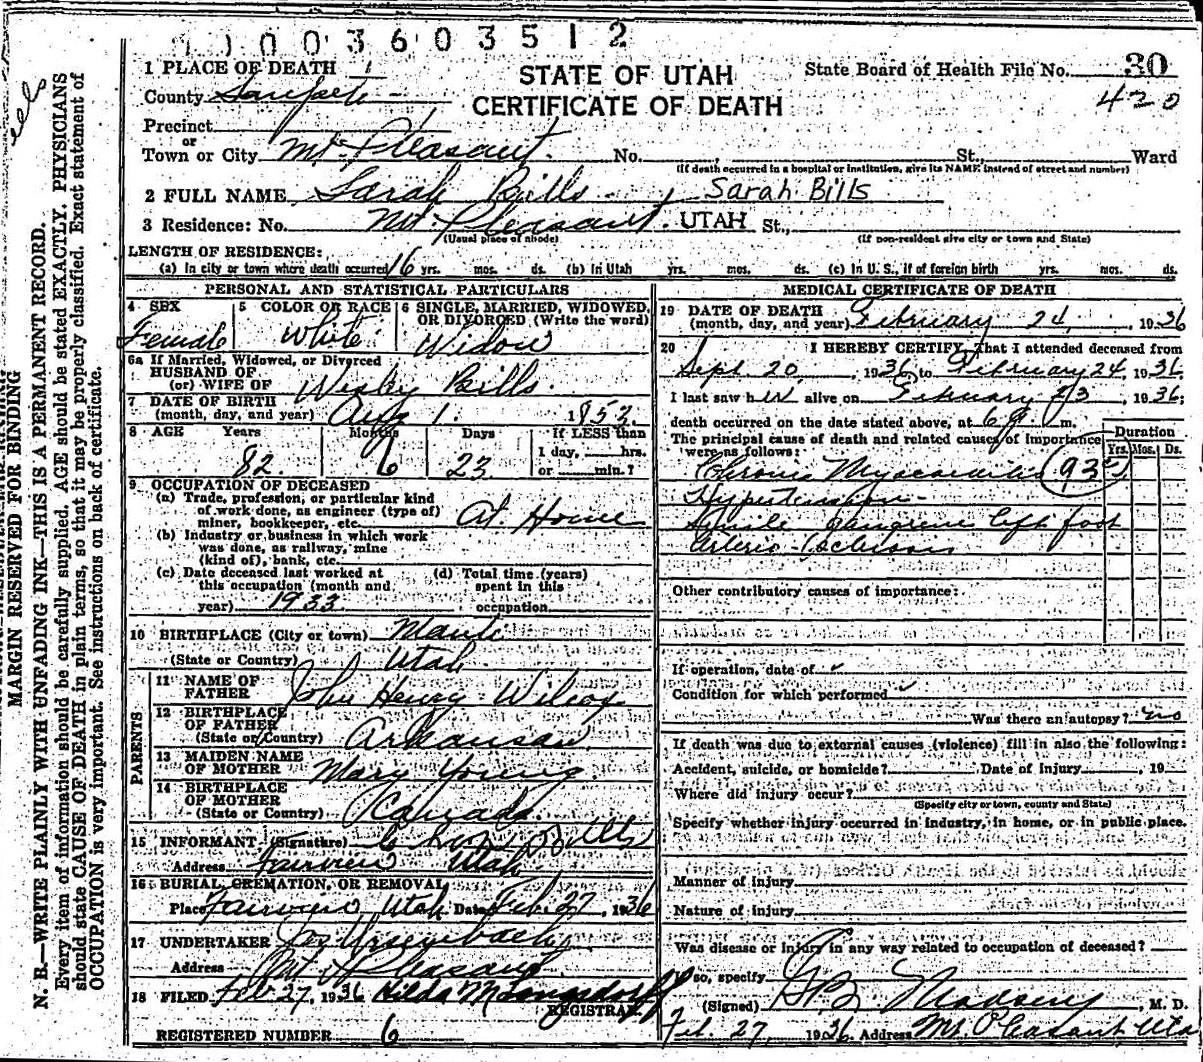 1003603512
1 PLACE OF DEATH
STATE OF UTAH
CERTIFICATE OF DEATH
State Board of Health File No. 30
420
County Sanpete
Precinct
or
Town or City Mt. Pleasant. No. , St., Ward
(If death occurred in a hospital or institution, give its NAME instead of street and number)
2 FULL NAME Sarah Bills , Sarah Bills
3 Residence: No. Mt. Pleasant. UTAH St.,
(Usual place of abode) (If non-resident give city or town and State)
LENGTH OF RESIDENCE:
(a) In city or town where death occurred 16 yrs. mos. ds. (b) In Utah yrs. mos. ds. (c) In U. S., if of foreign birth yrs. mos. ds.
PERSONAL AND STATISTICAL PARTICULARS
4 SEX
Female
5 COLOR OR RACE
White
6 SINGLE, MARRIED, WIDOWED,
OR DIVORCED (Write the word)
Widow
6a If Married, Widowed, or Divorced
HUSBAND OF
(or) WIFE OF Wesley Bills.
7 DATE OF BIRTH
(month, day, and year) Aug 1. 1853.
8 AGE Years Months Days If LESS than
1 day, hrs.
82. 6 23 or min.?
9 OCCUPATION OF DECEASED
(a) Trade, profession, or particular kind
of work done, as engineer (type of)
miner, bookkeeper, etc. At Home
(b) Industry or business in which work
was done, as railway, mine
(kind of), bank, etc.
(c) Date deceased last worked at
this occupation (month and
year) 1933
(d) Total time (years)
spent in this
occupation
10 BIRTHPLACE (City or town) Manti
(State or Country) Utah
PARENTS
11 NAME OF
FATHER John Henry Wilcox
12 BIRTHPLACE
OF FATHER
(State or Country) Arkansas
13 MAIDEN NAME
OF MOTHER Mary Young
14 BIRTHPLACE
OF MOTHER
(State or Country) Canada
15 INFORMANT (Signature) Bills
Address Fairview Utah
16 BURIAL, CREMATION, OR REMOVAL
Place Fairview, Utah Date Feb 27, 1936
17 UNDERTAKER
Address Mt. Pleasant
18 FILED Feb 27, 1936 Hilda M Longsdorf
REGISTRAR.
REGISTERED NUMBER 6
MEDICAL CERTIFICATE OF DEATH
19 DATE OF DEATH
(month, day, and year) February 24, 1936
20 I HEREBY CERTIFY, That I attended deceased from
Sept. 20, 1936 to February 24, 1936
I last saw her alive on February 23, 1936;
death occurred on the date stated above, at 6 m.
The principal cause of death and related causes of importance
were as follows:
Duration
Yrs. Mos. Ds.
Chronic Myocarditis 93c
Hypertension
Senile gangrene left foot
Arterio-Sclerosis
Other contributory causes of importance:
If operation, date of
Condition for which performed
Was there an autopsy? no
If death was due to external causes (violence) fill in also the following:
Accident, suicide, or homicide? Date of injury , 19
Where did injury occur?
(Specify city or town, county and State)
Specify whether injury occurred in industry, in home, or in public place.
Manner of injury
Nature of injury
Was disease or injury in any way related to occupation of deceased?
If so, specify
(Signed) Madsen , M. D.
Feb. 27, 1936 Address Mt. Pleasant Utah
MARGIN RESERVED FOR BINDING
N. B.—WRITE PLAINLY WITH UNFADING INK—THIS IS A PERMANENT RECORD.
Every item of information should be carefully supplied. AGE should be stated EXACTLY. PHYSICIANS
should state CAUSE OF DEATH in plain terms, so that it may be properly classified. Exact statement of
OCCUPATION is very important. See instructions on back of certificate.